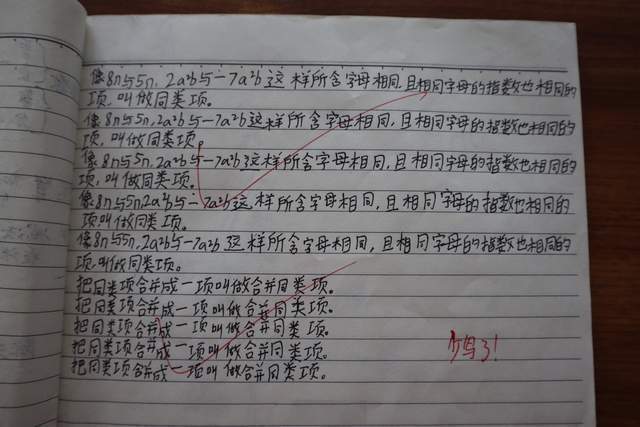 像8n与5n,2a²b与-7a²b这样所含字母相同,且相同字母的指数也相同的
项,叫做同类项。
像8n与5n,2a²b与-7a²b这样所含字母相同,且相同字母的指数也相同的
项,叫做同类项。
像8n与5n,2a²b与-7a²b这样所含字母相同,且相同字母的指数也相同的
项,叫做同类项。
像8n与5n2a²b与-7a²b这样所含字母相同,且相同字母的指数也相同的
项叫做同类项。
像8n与5n,2a²b与-7a²b这样所含字母相同,且相同字母的指数也相同的
项,叫做同类项。
把同类项合并成一项叫做合并同类项。
把同类项合并成一项叫做合并同类项。
把同类项合并成一项叫做合并同类项。
把同类项合并成一项叫做合并同类项。
把同类项合并成一项叫做合并同类项。
少写了!